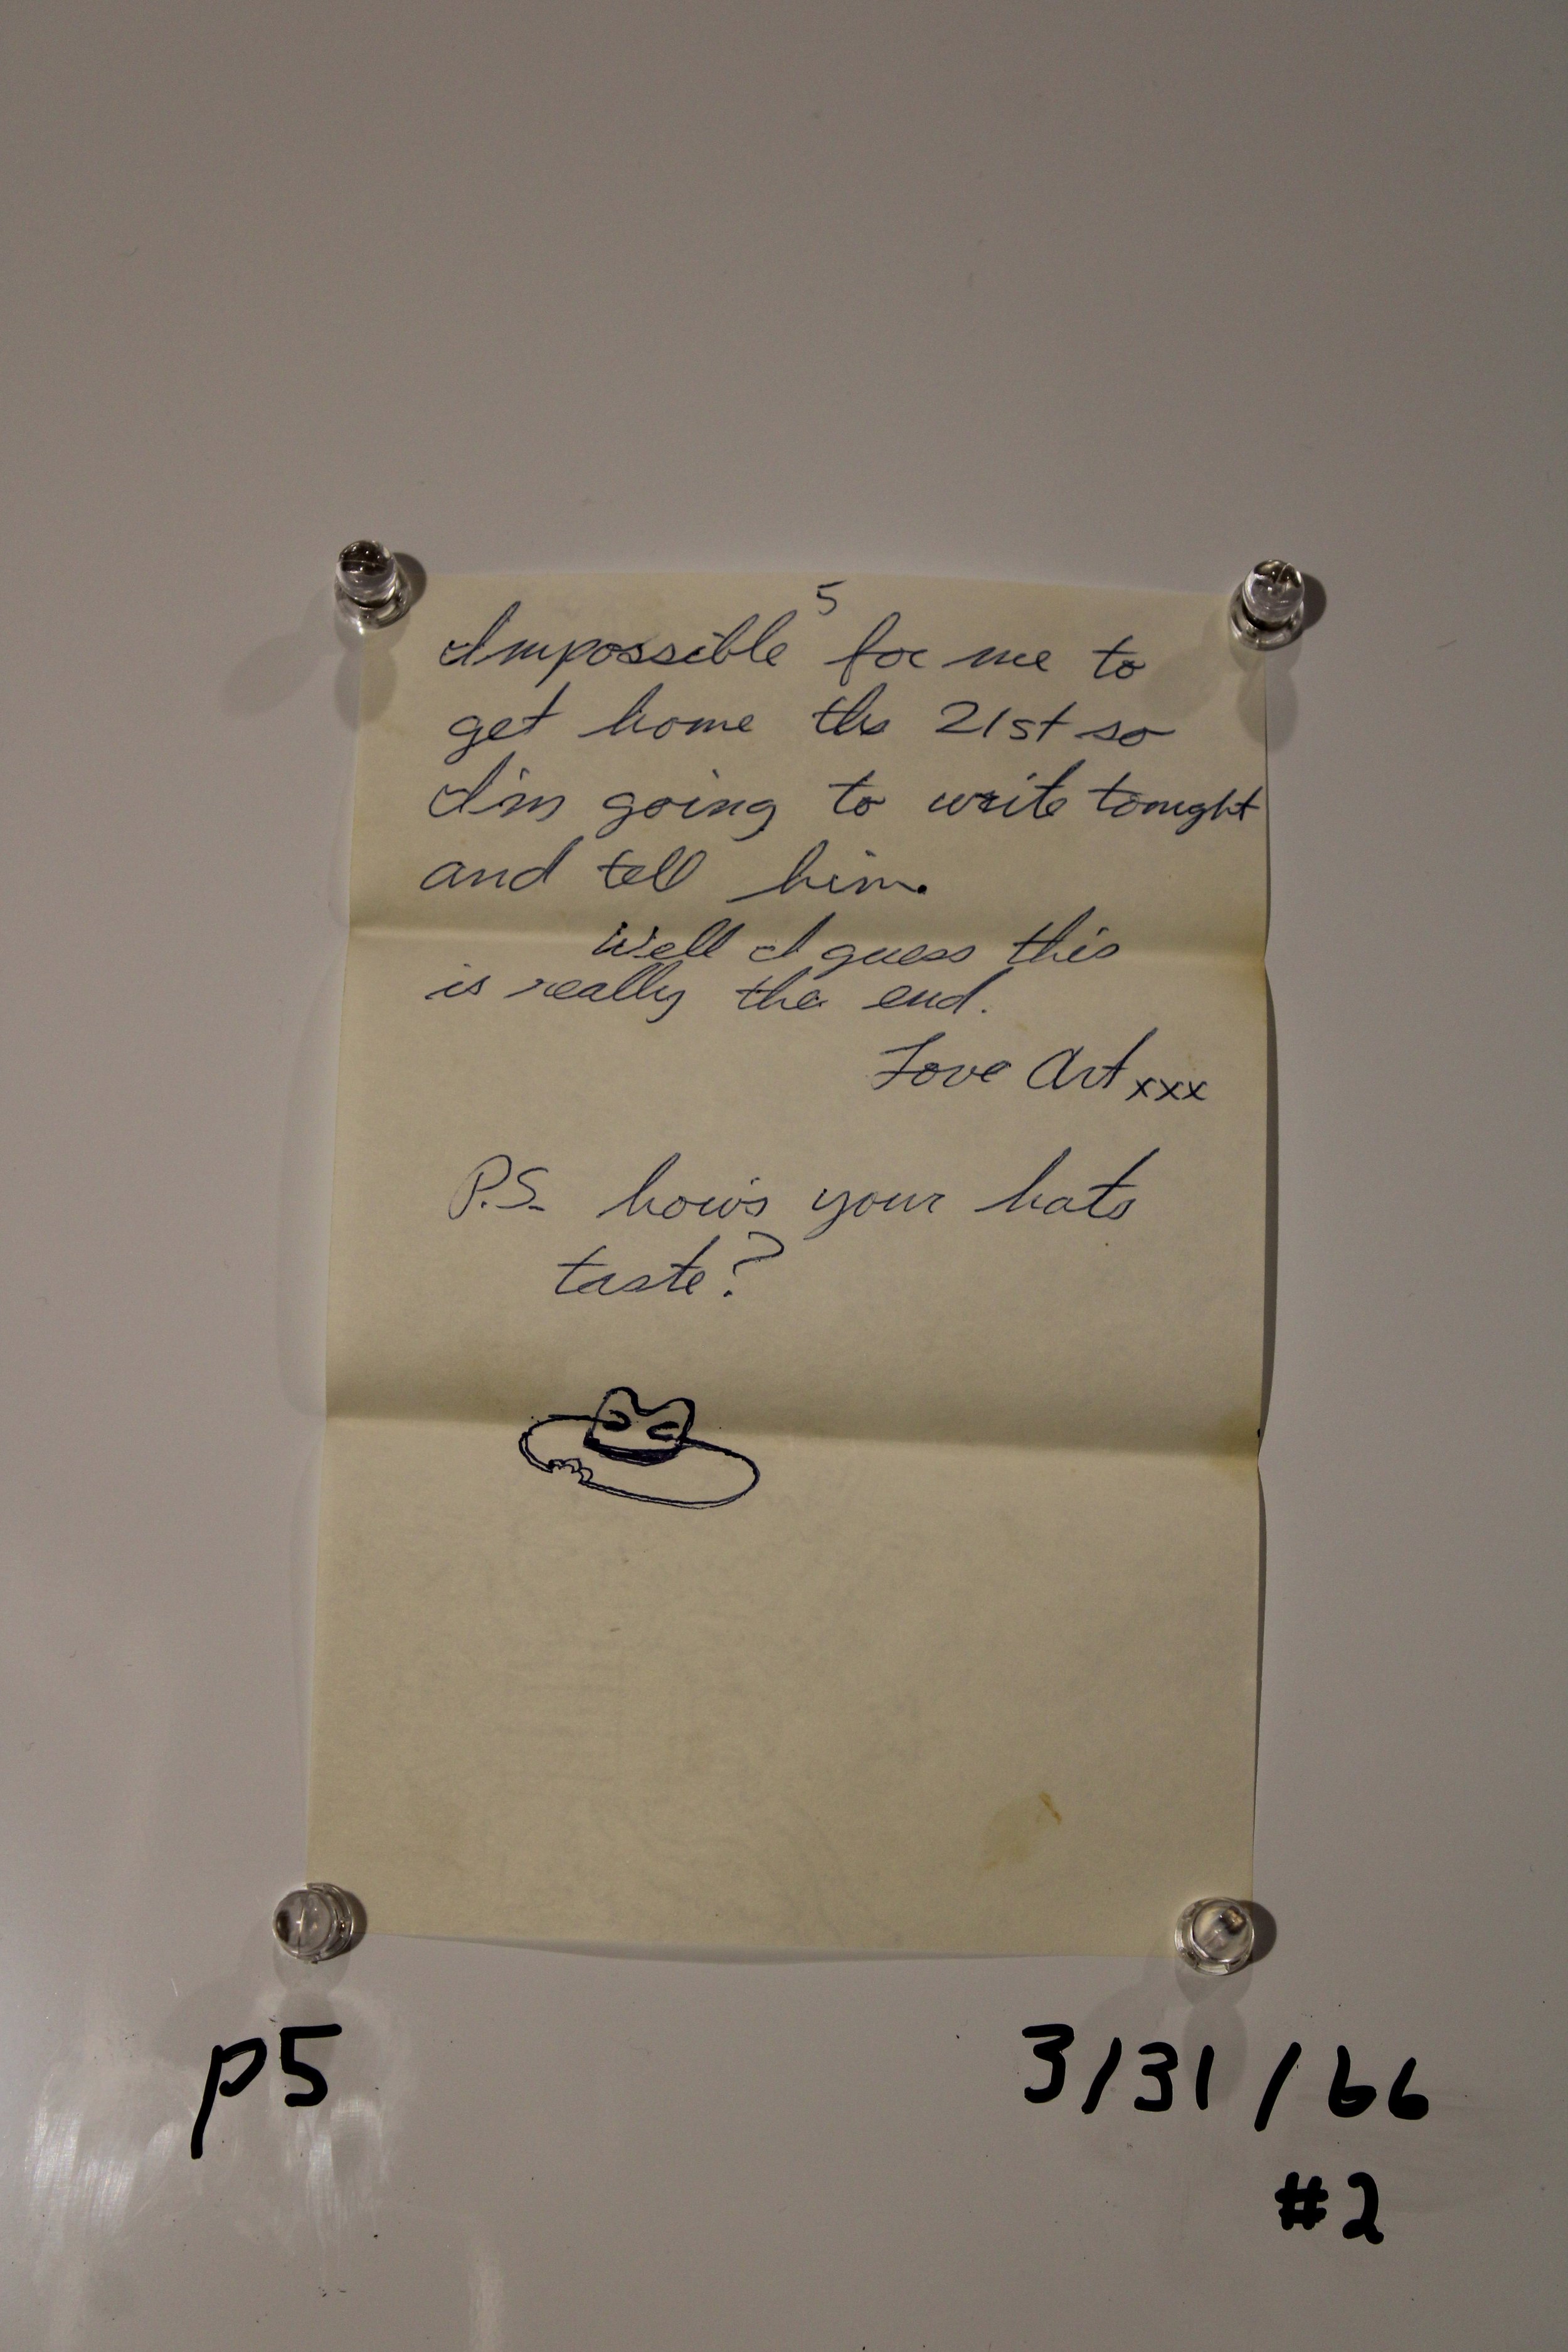 5
Impossible for me to
get home the 21st so
I'm going to write tonight
and tell him.
Well I guess this
is really the end.
Love Art xxx
P.S. how's your hats
taste?
p5
3/31/66
#2